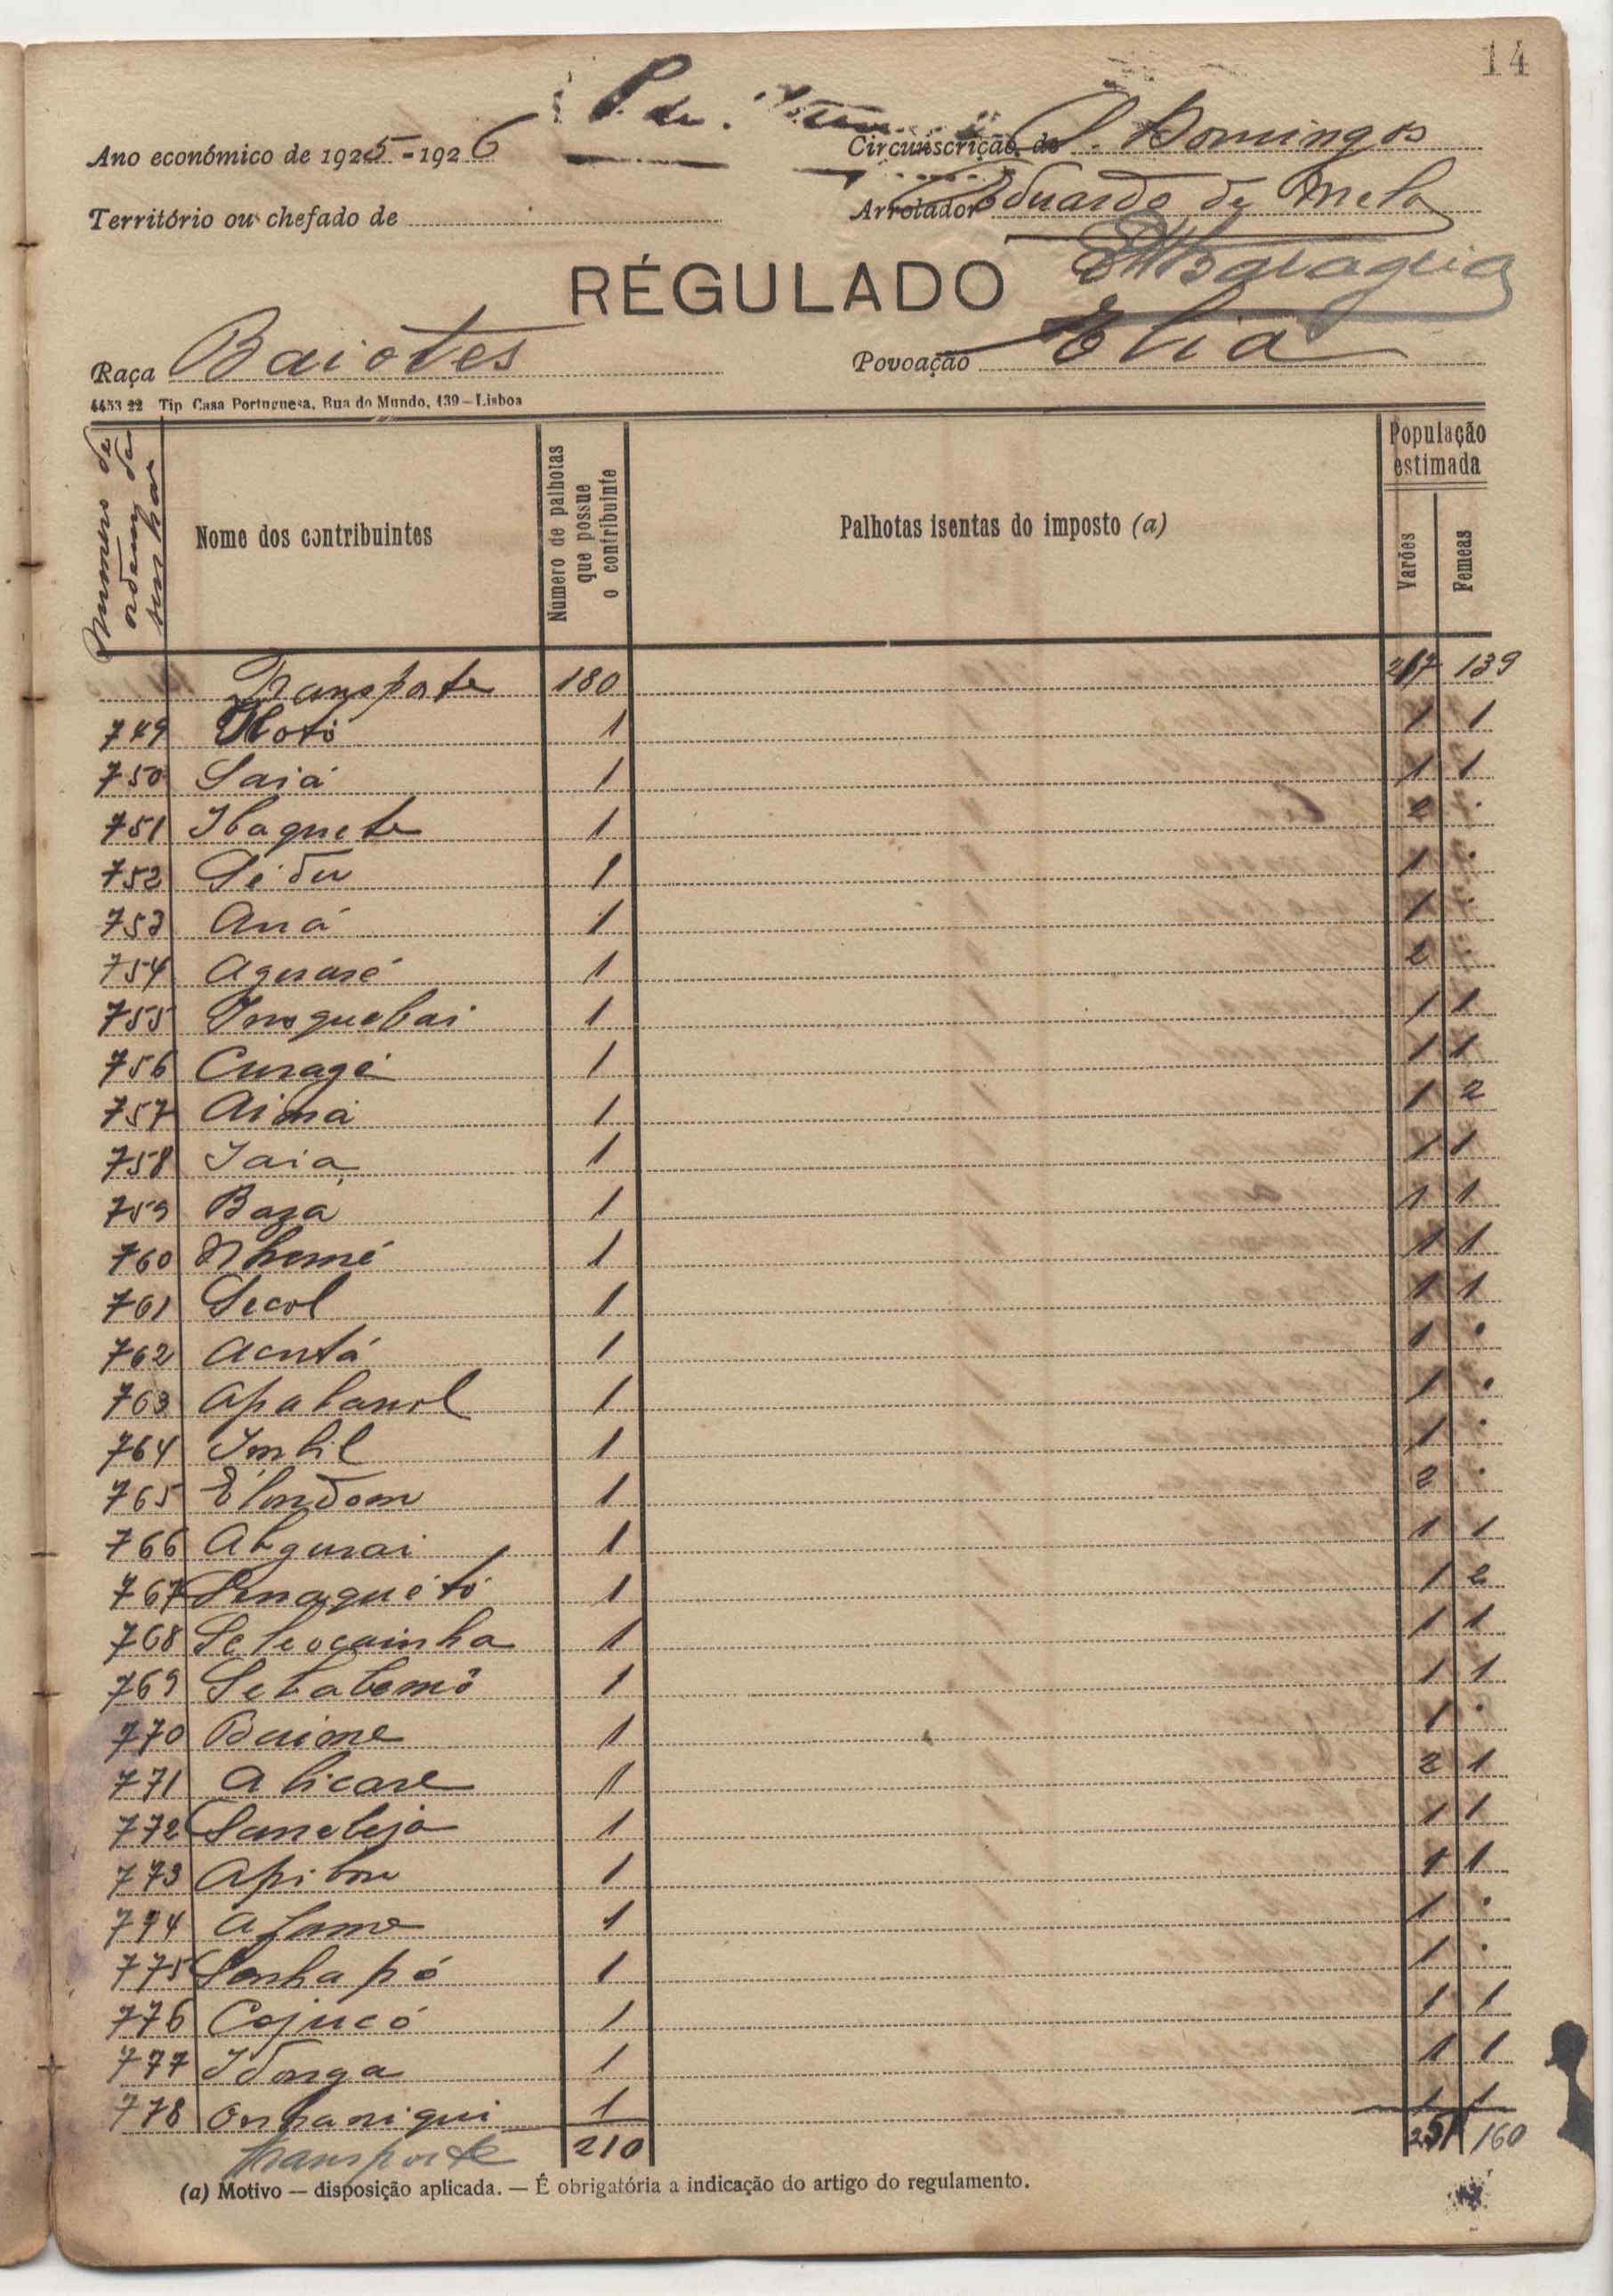 14
Ano económico de 1925-1926
Circunscrição de S. Domingos
Território ou chefado de
Arrolador Eduardo de Melo
RÉGULADO
Raça Baiotes
Povoação Elia
4453 22 Tip Casa Portuguesa, Rua do Mundo, 139—Lisboa
Numero de ordem de senhas
Nome dos contribuintes
Número de palhotas que possue o contribuinte
Palhotas isentas do imposto (a)
População estimada
Varões
Femeas
Transporte 180 217 139
749 1 1 1
750 Saiá 1 1 1
751 Ibaquete 1 2 .
752 Sé du 1 1 .
753 Aná 1 1 .
754 Agurasé 1 2 .
755 1 1 1
756 Curagé 1 1 1
757 Aimá 1 1 2
758 Jaia 1 1 1
759 Baza 1 1 1
760 Nhomé 1 1 1
761 Secol 1 1 1
762 Acutá 1 1 .
763 Apabanol 1 1 .
764 Imbil 1 1 .
765 Elondom 1 2 .
766 Abgurai 1 1 1
767 1 1 2
768 1 1 1
769 1 1 1
770 Baime 1 1 .
771 Alicare 1 2 1
772 Sanebeja 1 1 1
773 Apibon 1 1 1
774 1 1 .
775 Sonha pó 1 1 .
776 Cajucó 1 1 1
777 Idonga 1 1 1
778 1 1 1
Transporte 210 251 160
(a) Motivo — disposição aplicada. — É obrigatória a indicação do artigo do regulamento.